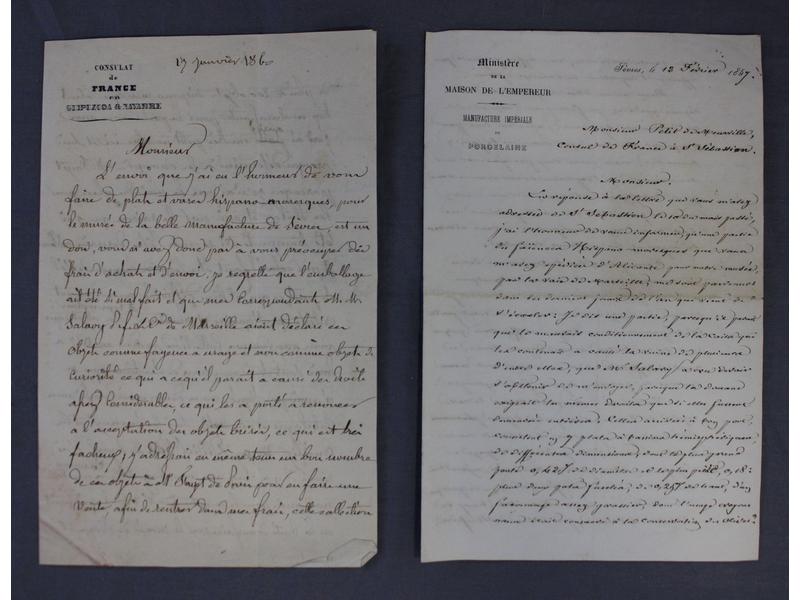 CONSULAT
de
FRANCE
en
GUIPUZCOA & NAVARRE
17 Janvier 186
Monsieur
L'envoi que j'ai eu l'honneur de vous
faire de plats et vases hispano moresques, pour
le musée de la belle manufacture de Sèvres, est un
don, vous n'avez donc pas à vous préoccuper des
frais d'achats et d'envoi, je regrette que l'emballage
ait été si mal fait et que mes Correspondants M. M.
Salavy de Marseille aient déclaré ces
objets comme fayence à usage et non comme objets de
curiosité ce qui a ce qu'il parait a causé des droits
assez considérables, ce qui les a porté a renoncer
a l'acceptation des objets brisés, ce qui est très
facheux, j'adressais en même tems un bon nombre
de ces objets à Mr de Paris pour en faire une
Vente, afin de rentrer dans mes frais, cette collection
Ministère
DE LA
MAISON DE L'EMPEREUR
MANUFACTURE IMPÉRIALE
DE
PORCELAINE
Sèvres, le 12 Février
Monsieur Petit de Meurville,
Consul de France à St Sébastien.
Monsieur.
En réponse à la lettre que vous m'avez
adressée de St Sébastien le 10 du mois passé,
j'ai l'honneur de vous informer, qu'une partie
de faïences Hispano moresques que vous
m'avez expédiée d'Alicante pour notre musée,
par la voie de Marseille, me sont parvenues
dans les derniers jours de l'an que vient de
s'écouler. Je dis une partie, parce qu'il parait
que le mauvais conditionnement de la caisse qui
les contenait a causé la ruine de plusieurs
d'entre elles, que Mr Salavy a cru devoir
s'abstenir de m'envoyer, puisque la douane
exigeait les mêmes droits que si elles fussent
demeurées entières. Celles arrivées à bon port,
consistent en 7 plats à
de différentes dimensions, dont le plus grand
porte 0,425 de diamètre et le plus petit 0,18:
plus deux pots de 0,25 de haut, d'un
façonnage assez grossier, dont l'usage croyons
nous était consacré à la conservation des Olives.